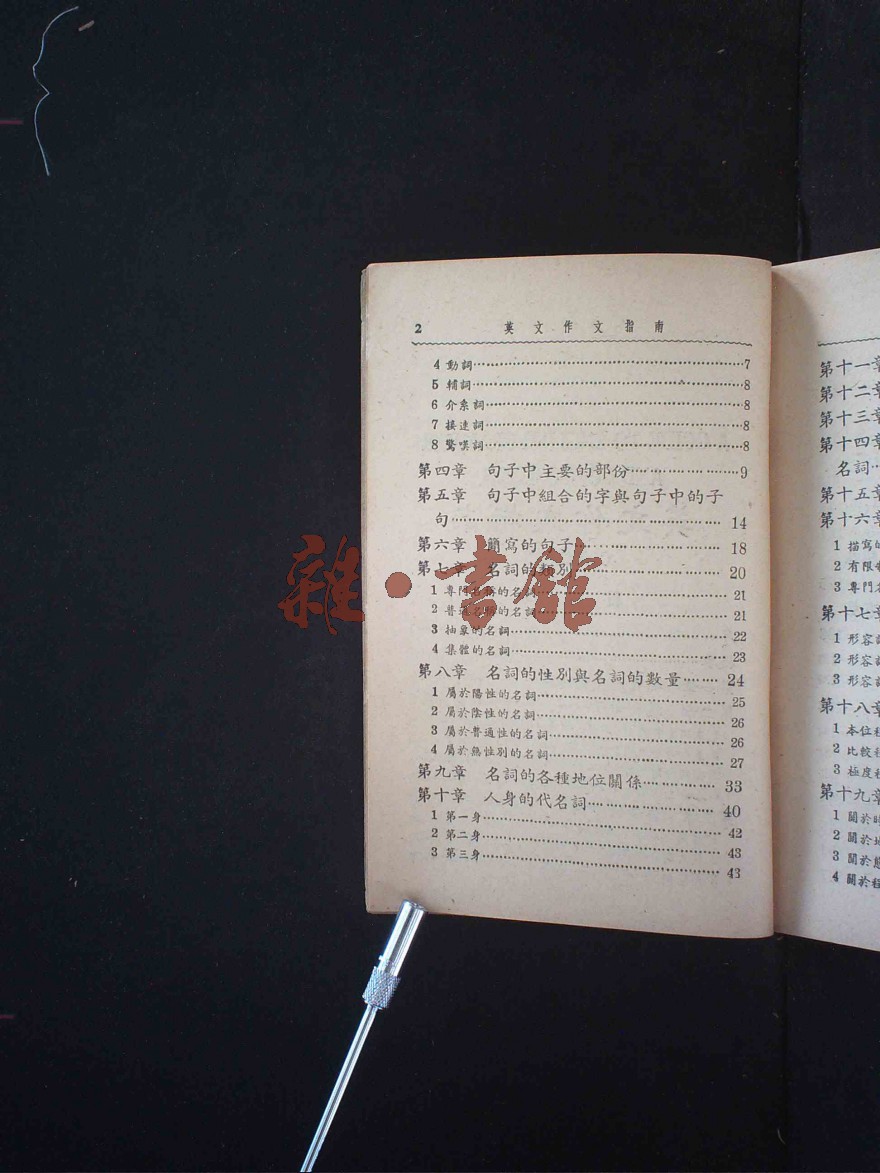 2 英文作文指南
4 動詞……7
5 輔詞……8
6 介系詞……8
7 接連詞……8
8 驚嘆詞……8
第四章 句子中主要的部份……9
第五章 句子中組合的字與句子中的子
句……14
第六章 簡寫的句子……18
第七章 名詞的類別……20
1 專門名稱的名詞……21
2 普通名稱的名詞……21
3 抽象的名詞……22
4 集體的名詞……23
第八章 名詞的性別與名詞的數量……24
1 屬於陽性的名詞……25
2 屬於陰性的名詞……26
3 屬於普通性的名詞……26
4 屬於無性別的名詞……27
第九章 名詞的各種地位關係……33
第十章 人身的代名詞……40
1 第一身……42
2 第二身……43
3 第三身……43
雜·書館
第十一章
第十二章
第十三章
第十四章
名詞…
第十五章
第十六章
1 描寫的
2 有限
3 專門名
第十七章
1 形容
2 形容
3 形容
第十八章
1 本位程
2 比較程
3 極度程
第十九章
1 關於時
2 關於地
3 關於態
4 關於程